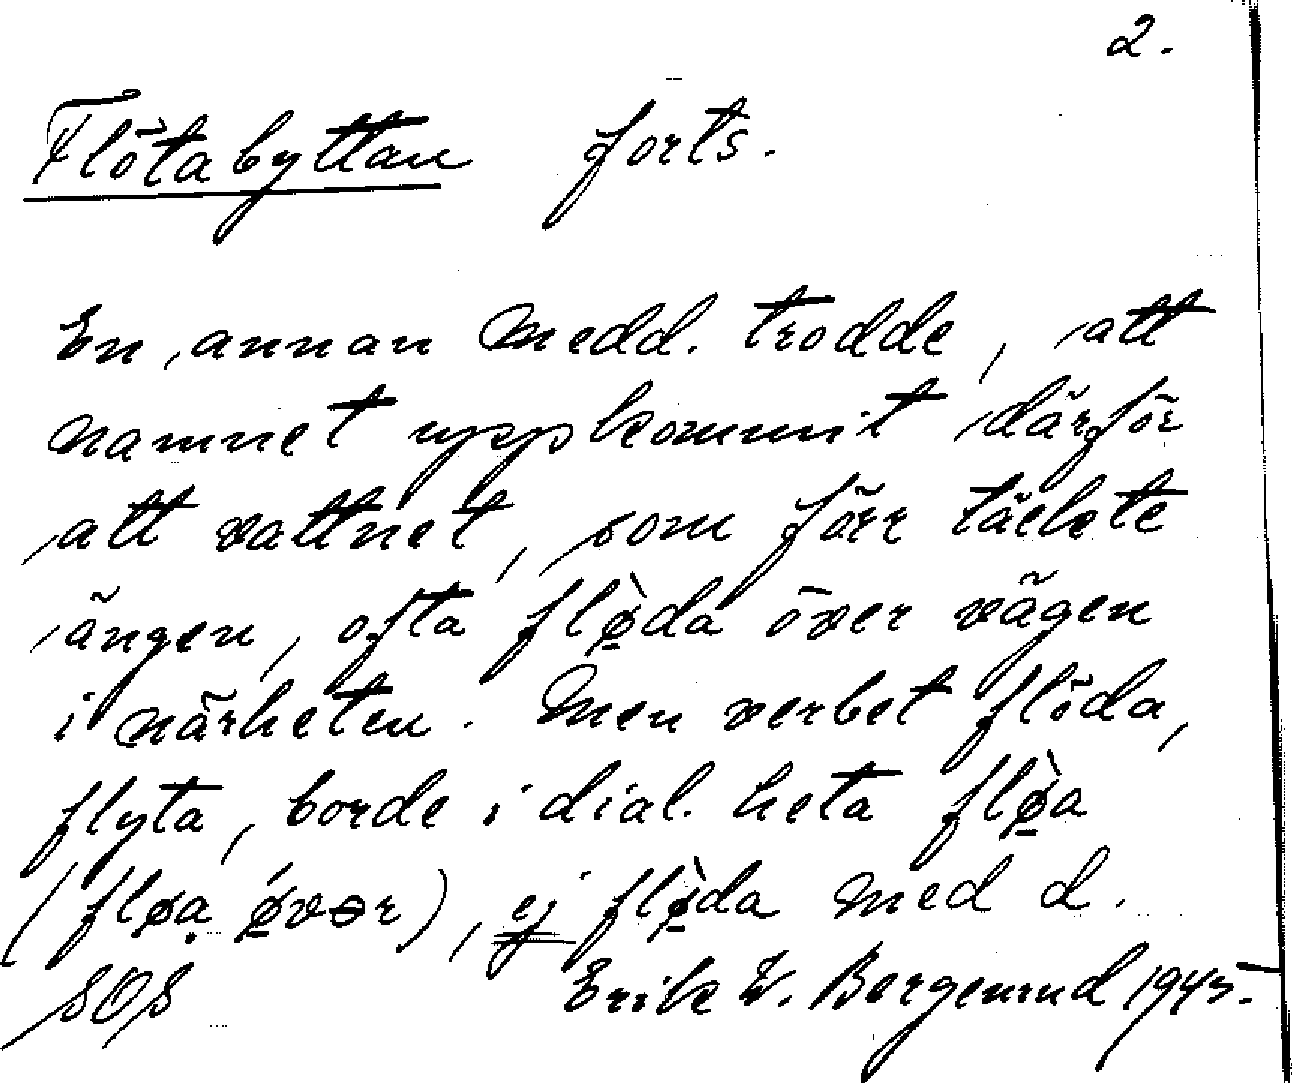 2.
Flötabyttan forts.
En annan medd. trodde, att
namnet uppkommit därför
att vattnet, som förr täckte
ängen, ofta flø̠̀da över vägen
i närheten. Men verbet flöda,
flyta, borde i dial. heta flø̠̀a
(fløạ ǿ̠vər), ej flø̠̀da med d.
SOS Erik W. Bergenrud 1945.